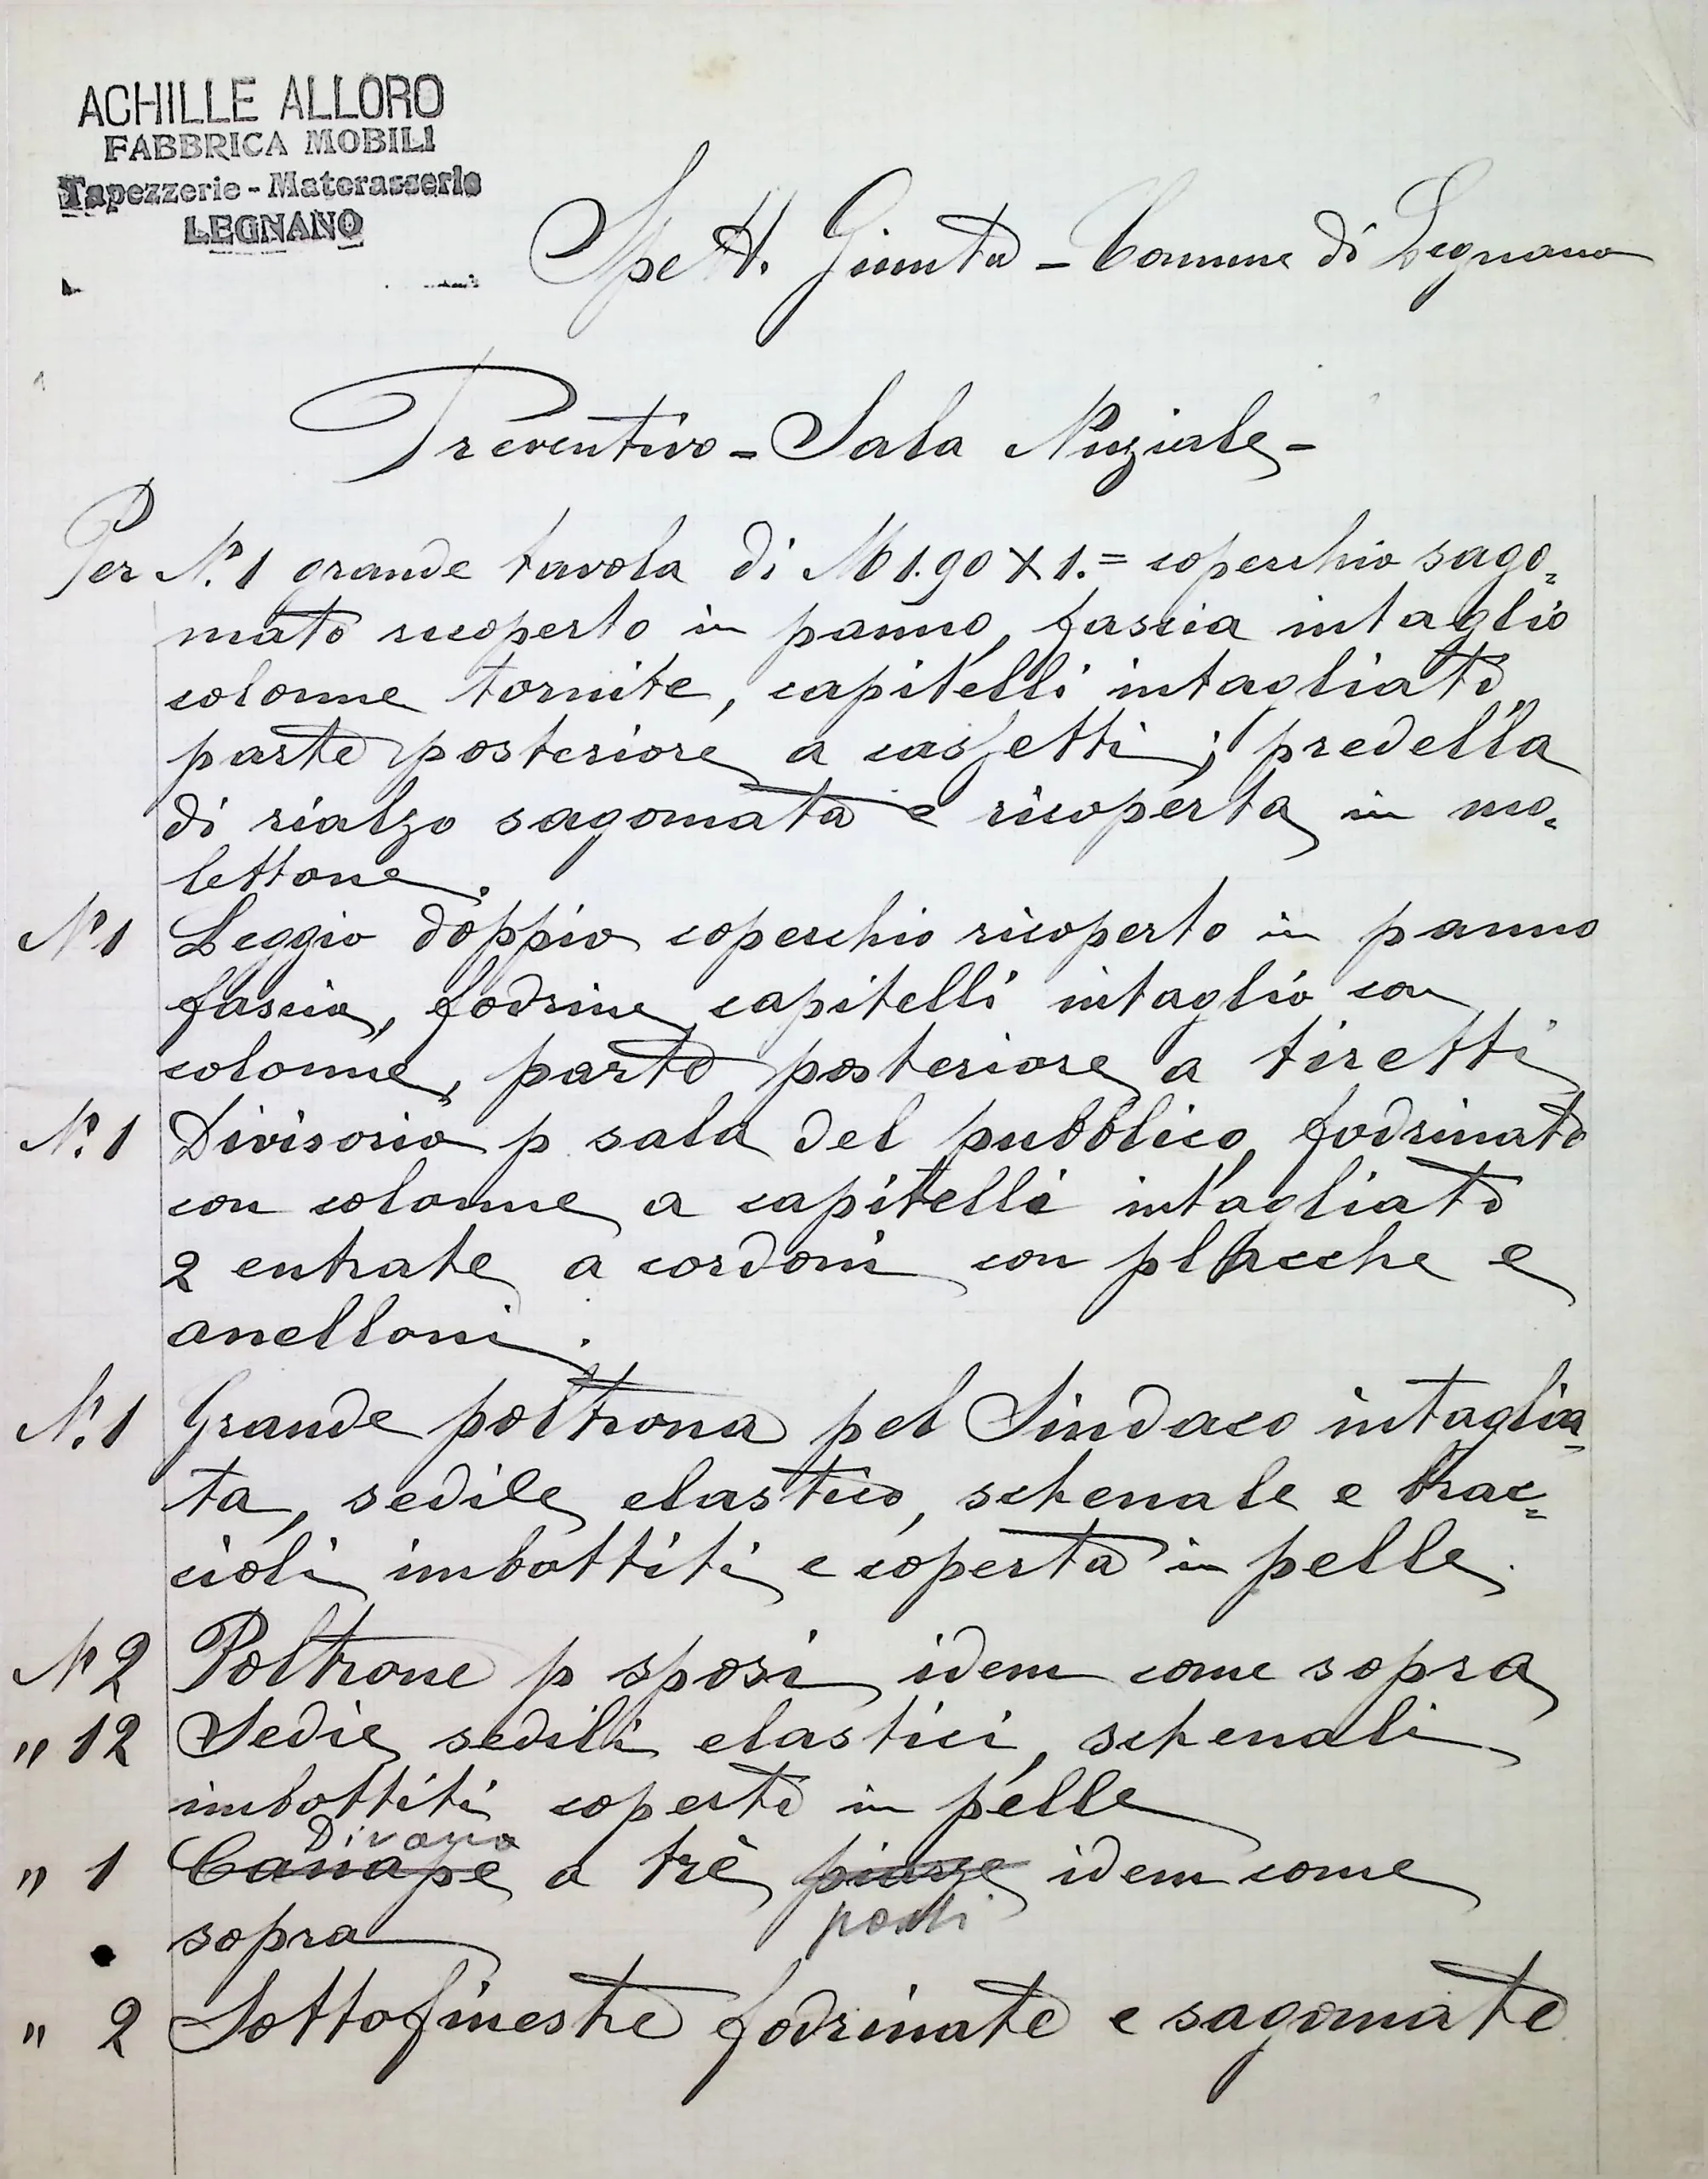 ACHILLE ALLORO
FABBRICA MOBILI
Tapezzerie - Materasserie
LEGNANO
Spett. Giunta - Comune di Legnano
Preventivo - Sala Nuziale -
Per N. 1 grande tavola di M 1.90 X 1.= coperchio sago=
mato ricoperto in panno, fascia intaglio
colonne tornite, capitelli intagliati
parte posteriore a cassetti; predella
di rialzo sagomata e ricoperta in mo=
lettone.
N 1 Leggio doppio coperchio ricoperto in panno
fascia, fodrine, capitelli intaglio con
colonne, parte posteriore a tiretti
N. 1 Divisorio p sala del pubblico, fodrinato
con colonne a capitelli intagliati
2 entrate a cordoni con placche e
anelloni.
N. 1 Grande poltrona pel Sindaco intaglia=
ta, sedile elastico, schenale e brac=
cioli imbottiti e coperta in pelle.
N 2 Poltrone p sposi idem come sopra
" 12 Sedie sedili elastici, schenali
imbottiti coperti in pelle
Divano
" 1 Canapè a trè piazze idem come
posti
sopra
" 2 Sottofinestre fodrinate e sagomate